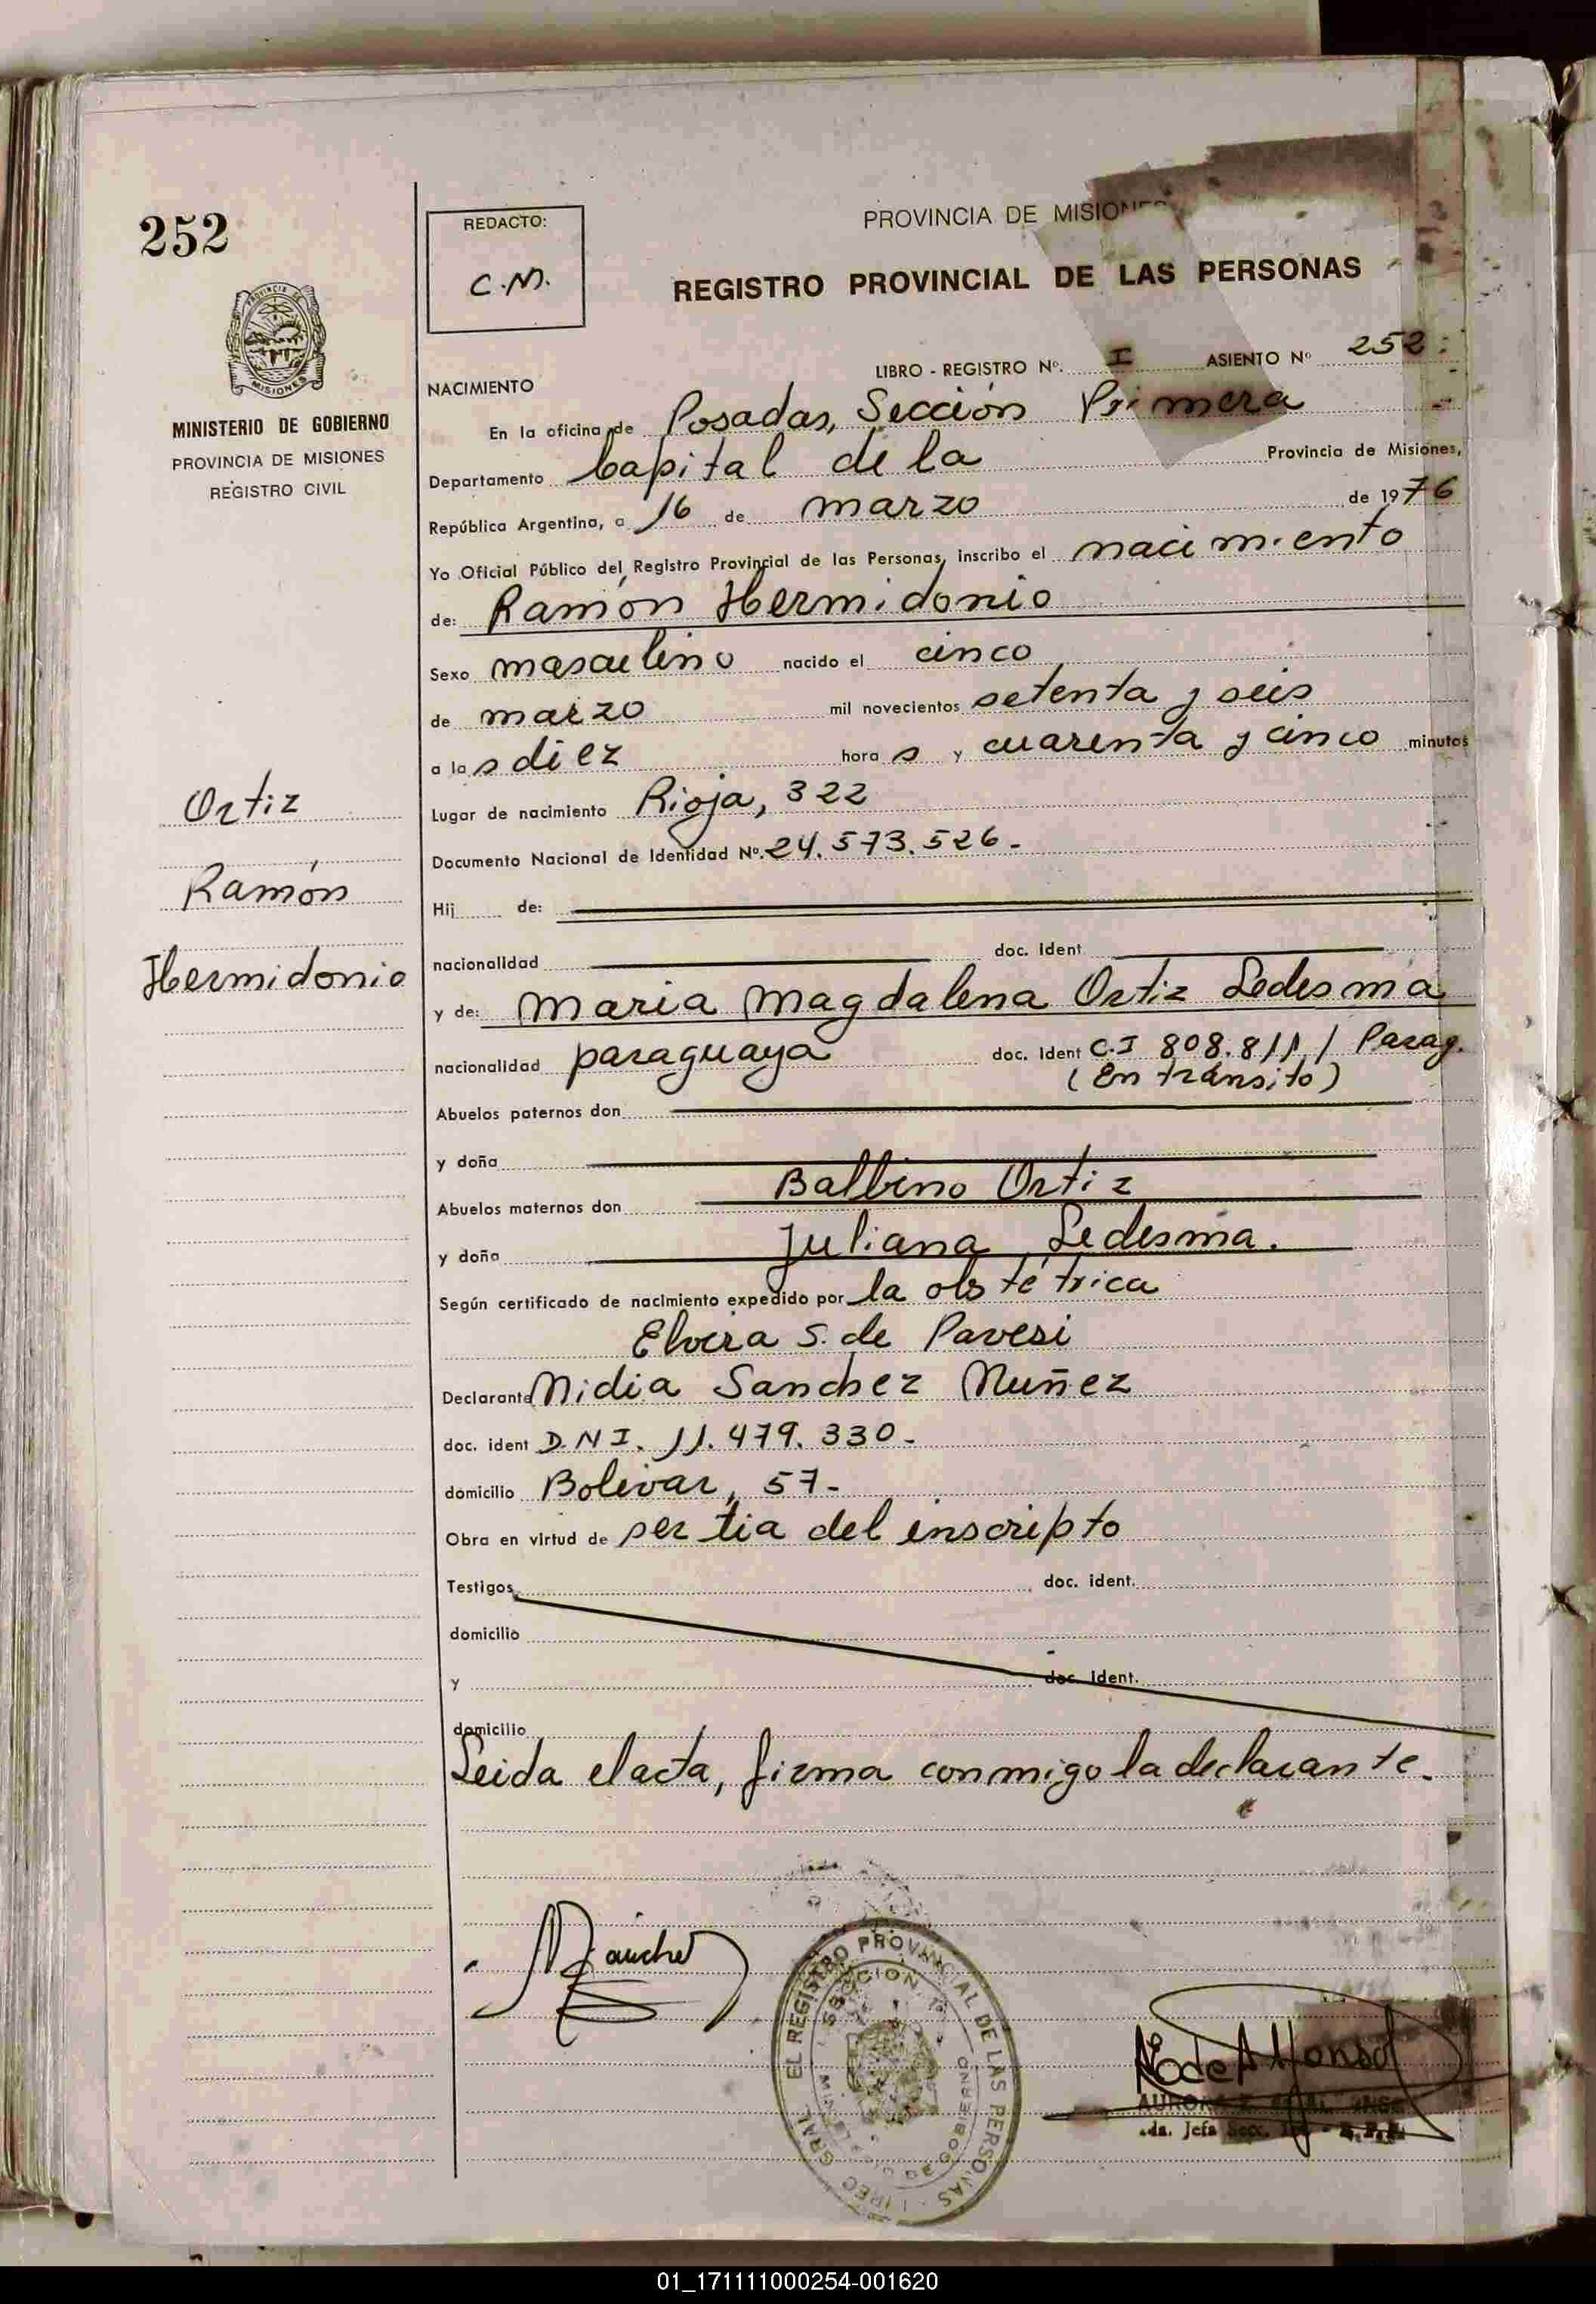 252
PROVINCIA DE MISIONES
REGISTRO PROVINCIAL DE LAS PERSONAS
REDACTO:
C.M.
MISIONES
MINISTERIO DE GOBIERNO
PROVINCIA DE MISIONES
REGISTRO CIVIL
LIBRO - REGISTRO Nº. I ASIENTO Nº 252
NACIMIENTO
En la oficina de Posadas, Sección Primera
Departamento Capital de la Provincia de Misiones,
República Argentina, a 16 de marzo de 1976
Yo Oficial Público del Registro Provincial de las Personas, inscribo el nacimiento
de: Ramón Hermidonio
Sexo masculino nacido el cinco
de marzo mil novecientos setenta y seis
a las diez horas y cuarenta y cinco minutos
Lugar de nacimiento Rioja, 322
Documento Nacional de Identidad Nº. 24.573.526.-
Hij de:
nacionalidad doc. ident
y de: Maria Magdalena Ortiz Ledesma
nacionalidad paraguaya doc. ident C.I 808.811 / Parag.
(En tránsito)
Abuelos paternos don
y doña
Abuelos maternos don Balbino Ortiz
y doña Juliana Ledesma.
Según certificado de nacimiento expedido por la obstétrica
Elvira S. de Pavesi
Declarante Nidia Sanchez Nuñez
doc. ident D.N.I. 11.479.330.-
domicilio Bolivar, 57-
Obra en virtud de ser tia del inscripto
Testigos doc. ident.
domicilio
y doc. ident.
domicilio
Leida el acta, firma conmigo la declarante.-
Ortiz
Ramón
Hermidonio
EL REGISTRO PROVINCIAL DE LAS PERSONAS
SECCION 1ª
DE GOBIERNO
Jefa Secc.
01_171111000254-001620